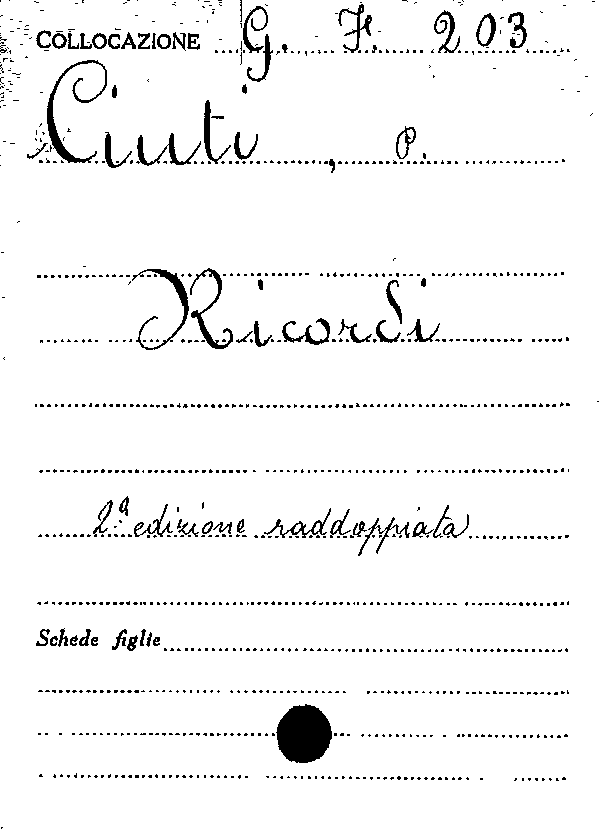 COLLOCAZIONE G. F. 203
Ciuti, P.
Ricordi
2.a edizione raddoppiata
Schede figlie